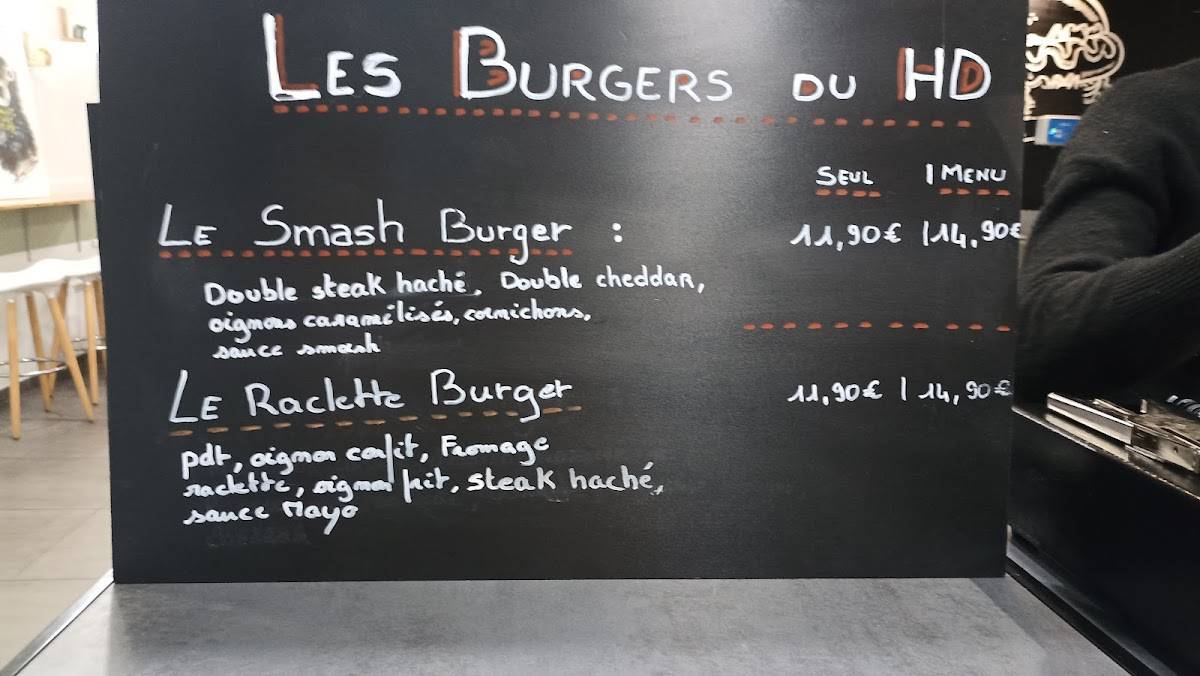 LES BURGERS DU HD
SEUL | MENU
LE Smash Burger : 11,90€ | 14,90€
Double steak haché, Double cheddar,
oignons caramélisés, cornichons,
sauce smash
LE Raclette Burger 11,90€ | 14,90€
pdt, oignon confit, Fromage
raclette, oignon frit, steak haché,
sauce Mayo